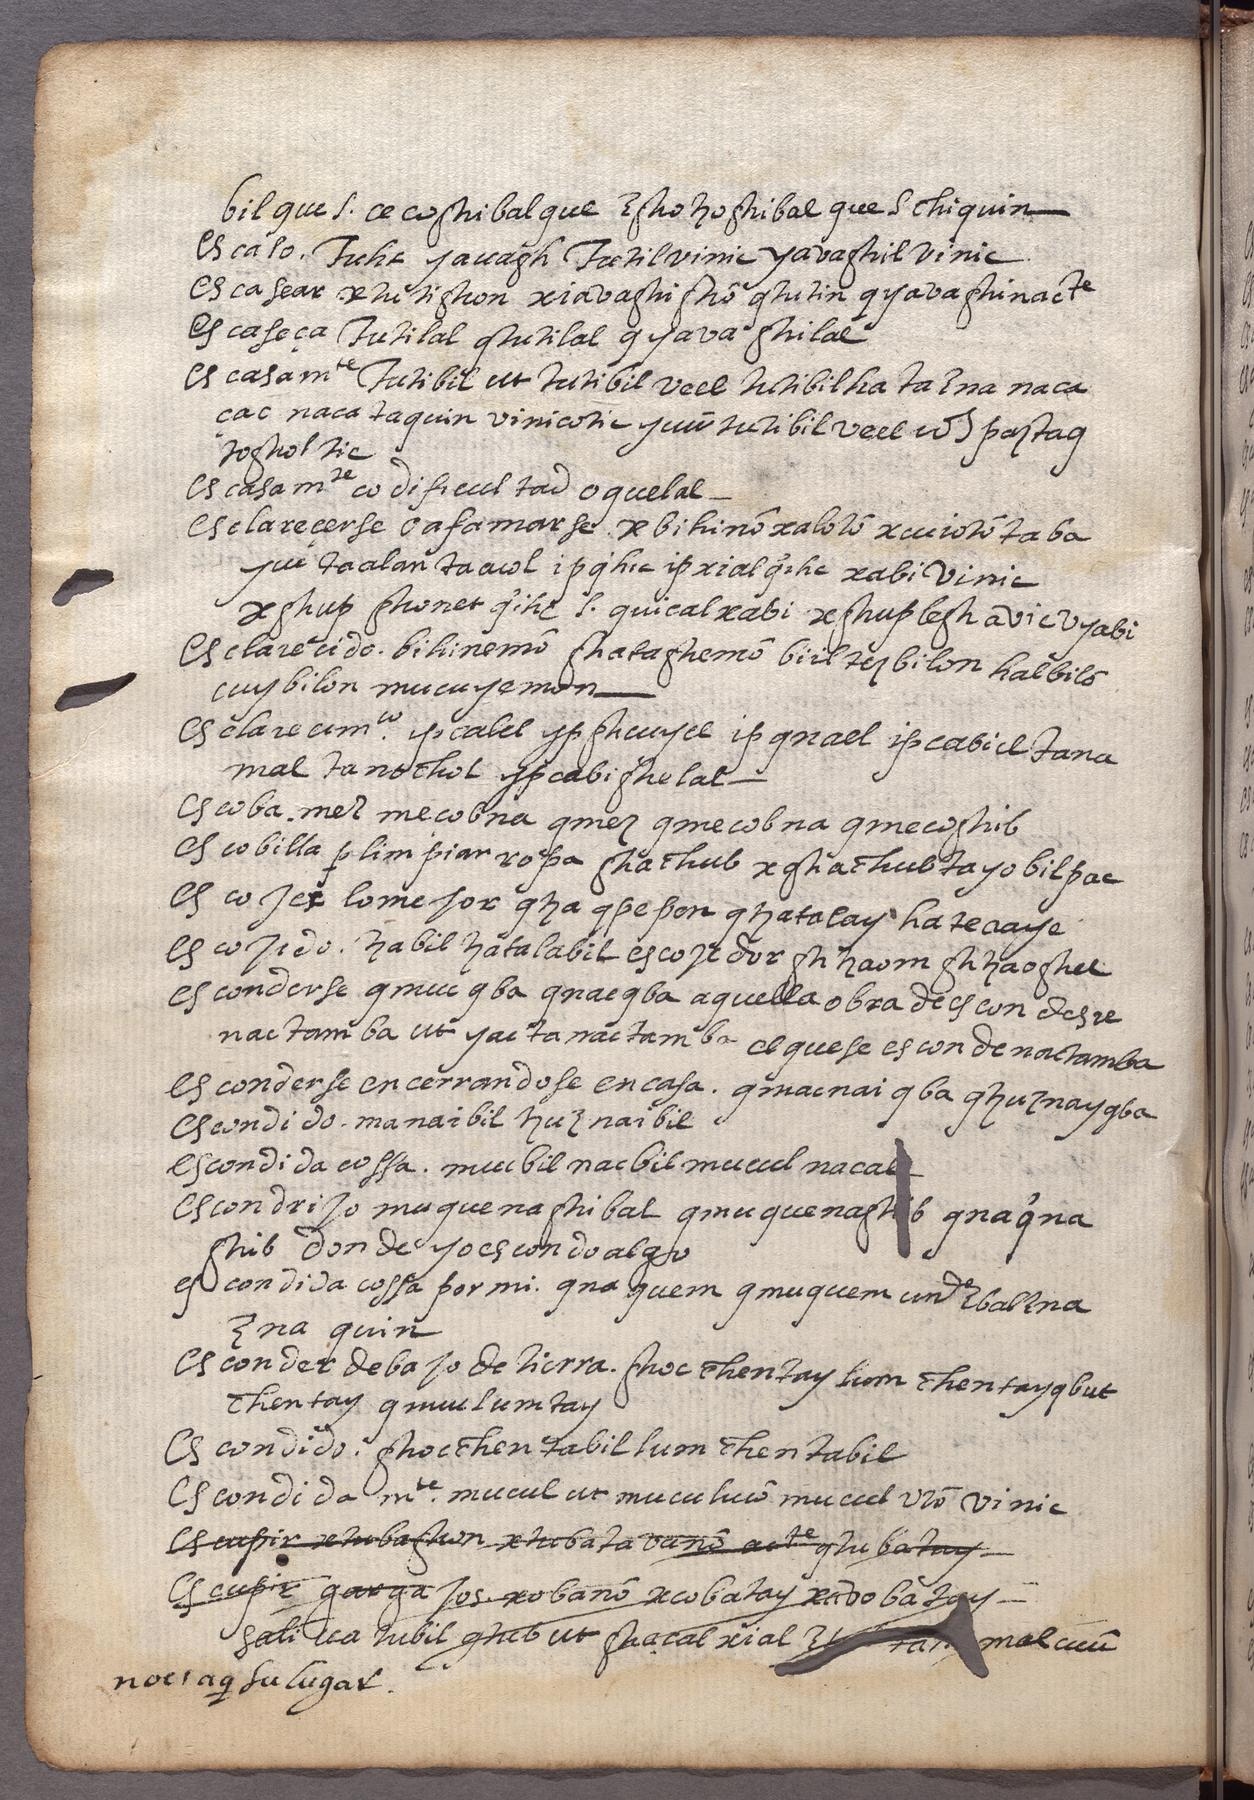 bil que s. cecoghibal que ꜫghohoghibal que s chiquin
Escaso. Tuht yauagh Tutil vinic yavaghil vinic
Escasear xtutighon xiavaghighõ qtutin qyavaghinacte
Escaseça Tutilal qtutilal qyavaghilal
Escasamte Tutibil ut tutibil veel tutibilha taꜫna naca
cac naca taquin vinicotic yuũ tutibil veel
toghol tic
Escasamte co dificultad oquelal
Esclarecerse o afamarse. xbihinõ xalotõ xcuiotõ taba
yuc taalan ip qhic ip xial qihc xabi vinic
xghup ghonet qihc s. quical xabi xghup legh avic vyabi
Esclarecido. bihinemõ ghataghemõ biiltezbilon halbilõ
cuybilon mucuyemon
Esclarecimto. ip calel yp ghcuyel ip qnael ip cabiel tana
mal tanethol yp cabighelal
Escoba. mez mecobna qmez qmecobna qmecoghib
Escobilla p limpiar ropa ghathub xghathubtayobil pac
Escojer lomejor qha qpepen qhatalay hatecaye
Escojido. habil hatalabil escojedor gh haom gh haoghel
Esconderse qmuc qba qnacqba aquella obra de esconderse
nactamba ut yactanactamba el que se esconde nactamba
Esconderse encerrandose encasa. qmacnai qba qhuꜫnayqba
Escondido. manaibil huꜫnaibil
Escondida cossa. mucbil nacbil mucul nacal
Escondrijo muquenaghibal qmuquenaghib qnaqna
ghib donde yo escondo algo
Escondida cossa por mi. qnaquem qmuquem ꜫbalꜫna
ꜫna quin
Esconder debajo de tierra. ghoc thentay lum thentay qbut
thentay qmuclumtay
Escondido. ghocthentabil lum thentabil
Escondida mte. mucul ut muculucõ mucul utõ vinic
Escupir xtubaghon xtubatavanõ acte qtubatay
Escupir gargajos. xobanõ xcobatay xcobatay
saliva tubil qtub ut ghacal xial mal cuũ
no es aq su lugar.